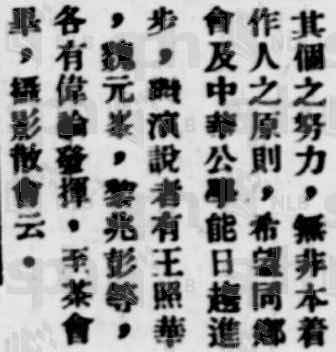 其個之努力，無非本着
作人之原則，希望同鄉
會及中華公學能日趨進
步，繼演說者有王照華
，魏元峯，黎兆彭等，
各有偉論發揮。至茶會
畢，攝影散會云。